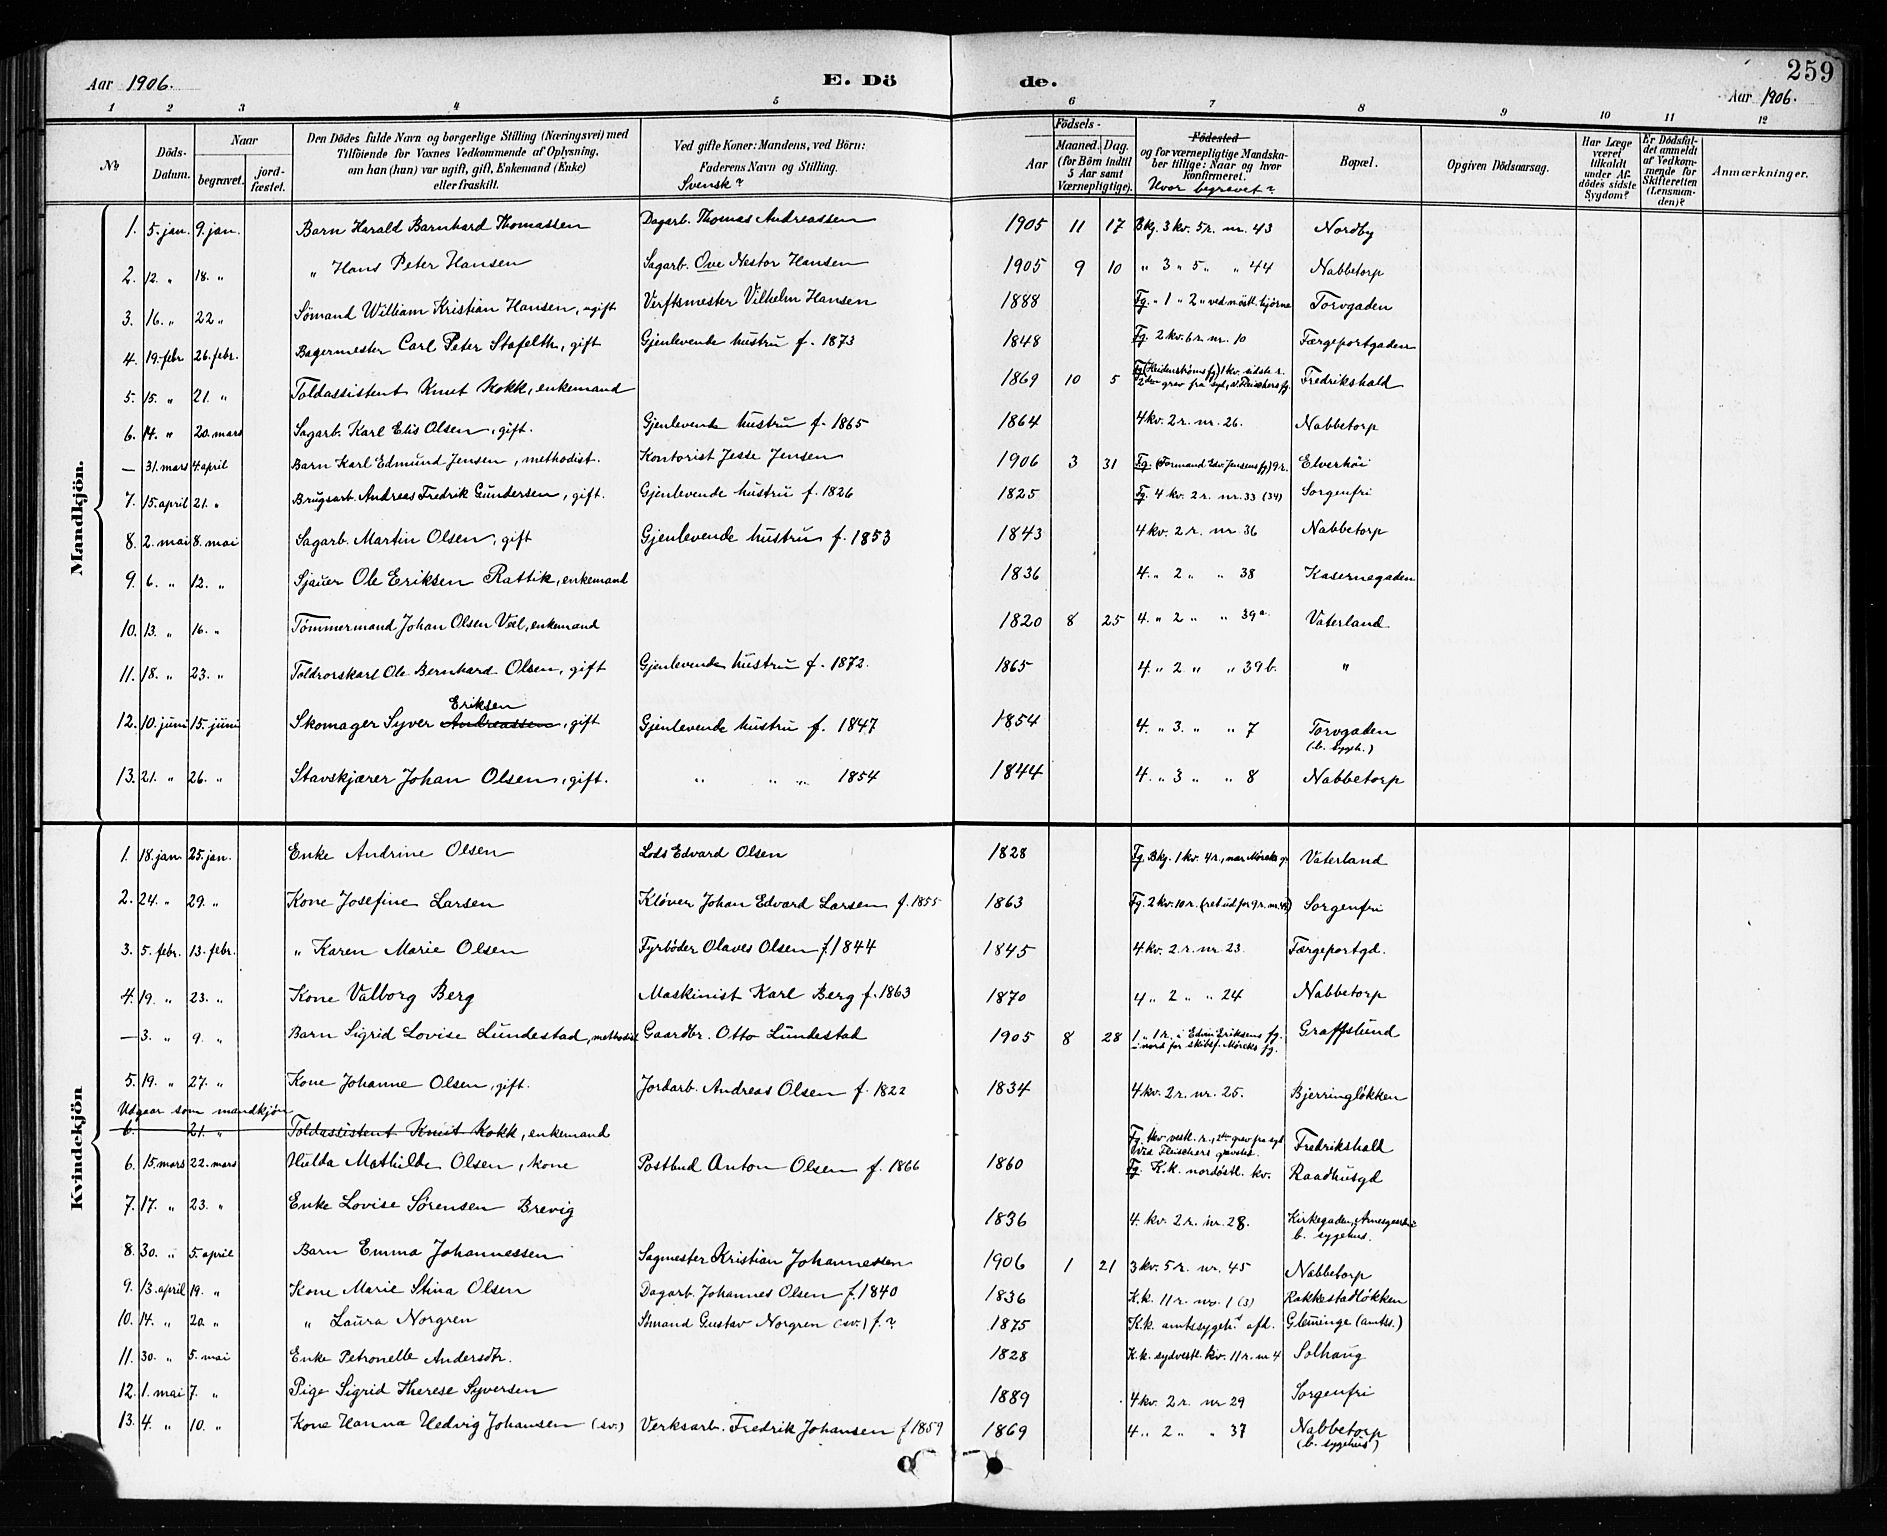 259
Aar 1906. E. Dö de. Aar 1906.
1 2 3 4 5 6 7 8 9 10 11 12
№ Döds-Datum. Naar begravet. jord-fæstet. Den Dödes fulde Navn og borgerlige Stilling (Næringsvei) med Tilföiende for Voxnes Vedkommende af Oplysning, om han (hun) var ugift, gift, Enkemand (Enke) eller fraskilt. Ved gifte Koner: Mandens, ved Börn: Faderens Navn og Stilling. Svensk? Födsels- Aar Maaned. Dag. (for Börn indtil 5 Aar samt Værnepligtige). Födested og for værnepligtige Mandskaber tillige: Naar og hvor konfirmeret. Hvor begravet? Bopæl. Opgiven Dödsaarsag. Har Læge været tilkaldt under Afdödes sidste Sygdom? Er Dödsfaldet anmeldt af Vedkommende for Skifteretten (Lensmanden)? Anmærkninger.
Mandkjön.
1. 5. jan. 9. jan. Barn Harald Barnhard Thomassen Dagarb. Thomas Andreassen 1905 11 17 Bkg. 3 kv. 5 r. nr. 43 Nordby
2. 12. " 18. " " Hans Peter Hansen Sagarb. Ove Nestor Hansen 1905 9 10 " 3 " 5 " " 44 Nabbetorp
3. 16. " 22 " Sömand William Kristian Hansen, ugift Verftsmester Vilhelm Hansen 1888 Fg. " 1 " 2 " ved nöstl. hjörne Torvgaden
4. 19. febr 26. febr. Bagermester Carl Peter Stafelth, gift Gjenlevende hustru f. 1873 1848 Fg. 2 kv. 6 r. nr. 10 Færgeportgaden
5. 15. " 21. " Toldassistent Knut Kokk, enkemand 1869 10 5 Fg. 1 kv. sidste r. 2den grav fra syd, v. Fleischers fg. Fredrikshald
6. 14. " 20. mars Sagarb. Karl Elis Olsen, gift. Gjenlevende hustru f. 1865 1864 4 kv. 2 r. nr. 26. Nabbetorp
— 31. mars 4. april Barn Karl Edmund Jensen, methodist. Kontorist Jesse Jensen 1906 3 31 Fg. (Formand Edv. Jensens fg.) 9 r. Elverhöi
7. 15. april 21. " Brugsarb. Andreas Fredrik Gundersen, gift. Gjenlevende hustru f. 1826 1825 Fg. 4 kv. 2 r. nr. 33 (34) Sorgenfri
8. 2. mai 8. mai Sagarb. Martin Olsen, gift Gjenlevende hustru f. 1853 1843 4 kv. 2 r. nr 36 Nabbetorp
9. 6. " 12. " Sjauer Ole Eriksen Rattik, enkemand 1836 4. " 2 " " 38 Kasernegaden
10. 13. " 16. " Tömmermand Johan Olsen Veel, enkemand 1820 8 25 4. " 2 " " 39 a. Vaterland
11. 18. " 23. " Toldrorskarl Ole Bernhard Olsen, gift Gjenlevende hustru f. 1872. 1865 4. " 2 " " 39 b. "
Eriksen
12. 10. juni 15. juni Skomager Syver Andreassen, gift Gjenlevende hustru f. 1847 1854 4. " 3. " " 7 Torvgaden (b. sygeh.)
13. 21. " 26. " Stavskjærer Johan Olsen, gift. " " " 1854 1844 4. " 3 " " 8 Nabbetorp
Kvindekjön
1. 18. jan. 25. jan. Enke Andrine Olsen Lods Edvard Olsen 1828 Fg. Bkg. 1 kv. 4 r., nær Mørcks g. Vaterland
2. 24. " 29. " Kone Josefine Larsen Kløver Johan Edvard Larsen f. 1855 1863 Fg. 2 kv. 10 r. (ret ud for 9 r. nr. 42) Sorgenfri
3. 5. febr. 13. febr. " Karen Marie Olsen Fyrböder Olaves Olsen f. 1844 1845 4 kv. 2 r. nr 23. Færgeportgd.
4. 19. " 23. " Kone Valborg Berg Maskinist Karl Berg f. 1863 1870 4 " 2 " " 24 Nabbetorp
— 3. " 9. " Barn Sigrid Lovise Lundestad, methodist Gaardbr. Otto Lundestad 1905 8 28 1 " 1 r. i Edvin Eriksens fg. i nord for skibsf. Mørcks fg. Graffslund
5. 19. " 27. " Kone Johanne Olsen, gift. Jordarb. Andreas Olsen f. 1822 1834 4 kv. 2 r. nr. 25. Bjerringløkken
Udgaar som mandkjön
6. 21. " Toldassistent Knut Kokk, enkemand Fg. 1 kv. vestl. r., 2den grav fra syd ved Fleischers gravsted. Fredrikshald
6. 15. mars 22. mars Hulda Mathilde Olsen, kone Postbud Anton Olsen f. 1866 1860 Fg. K.k. nordöstl. kv. Raadhusgd
7. 17. " 23. " Enke Lovise Sørensen Brevig 1836 4. kv. 2 r. nr. 28. Kirkegaden, b. sygehus.
8. 30. " 5. april Barn Emma Johannessen Sagmester Kristian Johannessen 1906 1 21 3 kv. 5 r. nr. 45 Nabbetorp
9. 13. april 19. " Kone Marie Stina Olsen Dagarb. Johannes Olsen f. 1840 1836 K.k. 11 r. no. 1 (3) Rakkestadløkken
10. 14. " 20. " " Laura Norgren Sömand Gustav Norgren (sv.) f. ? 1875 K.k. amtssygeh. afd. Glemminge (amtss.)
11. 30. " 5. mai Enke Petronelle Andersdtr. 1828 K.k. sydvestl. kv. 11 r. nr 4 Solhaug
12. 1. mai 7. " Pige Sigrid Therese Syversen 1889 4 kv. 2 r. nr 29 Sorgenfri
13. 4. " 10. " Kone Hanna Hedvig Johansen (sv.) Verksarb. Fredrik Johansen f 1859 1869 4 " 2 " " 37 Nabbetorp (b. sygehus)